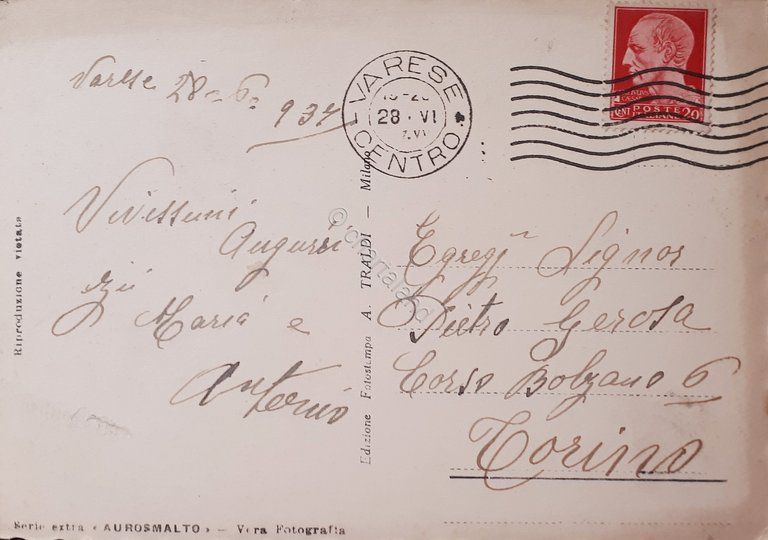 Varese 28-6-
937
Vivissimi
Auguri
zii
Maria e
Antonio
VARESE
CENTRO
28 · VI
POSTE
ITALIANE
CENT 20
Egregi Signor
Pietro Gerosa
Corso Bolzano 6
Torino
Riproduzione vietata
Edizione Fotostampa A. TRALDI — Milano
Serie extra « AUROSMALTO » — Vera Fotografia